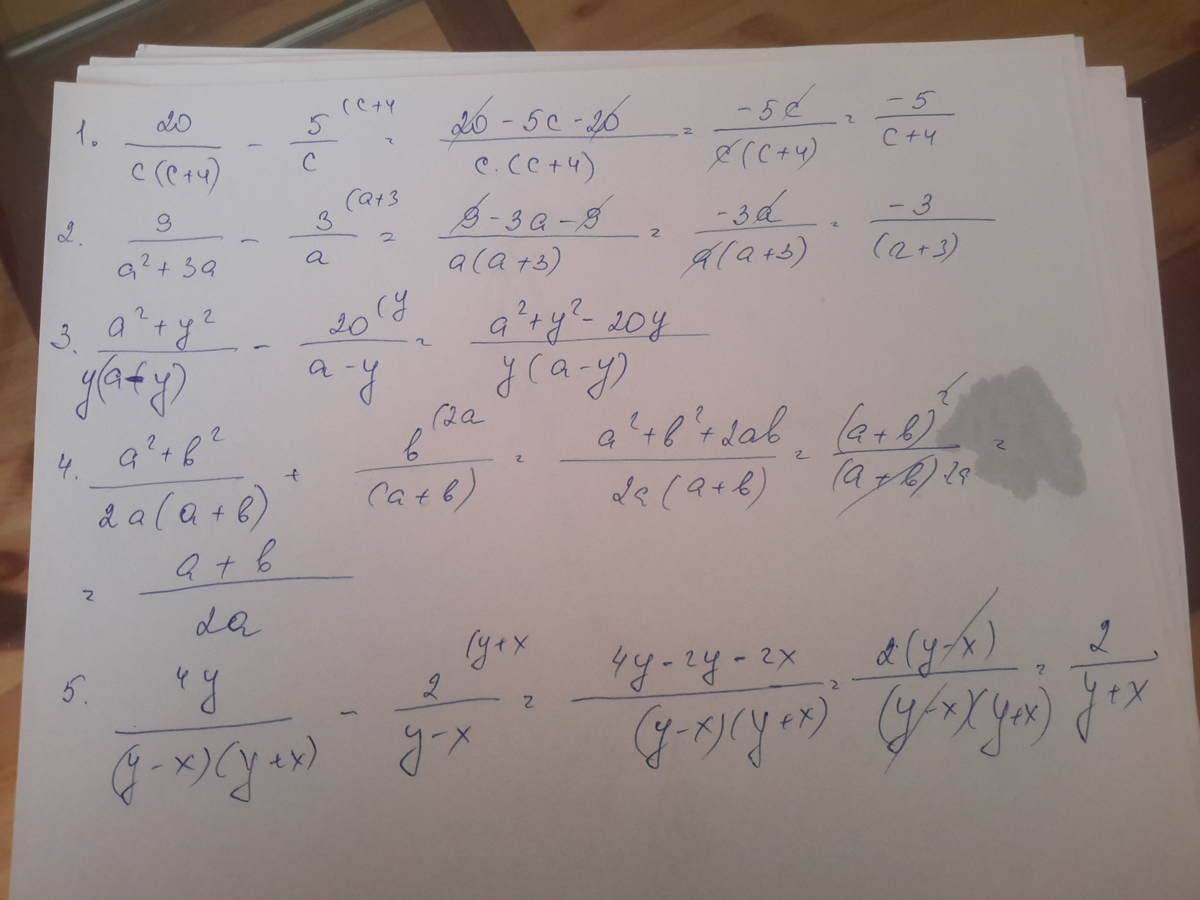 1. 20/(c(c+4)) - 5/c (c+4 = (20 - 5c - 20)/(c·(c+4)) = -5c/(c(c+4)) = -5/(c+4)
2. 9/(a²+3a) - 3/a (a+3 = (9 - 3a - 9)/(a(a+3)) = -3a/(a(a+3)) = -3/(a+3)
3. (a²+y²)/(y(a-y)) - 20/(a-y) (y = (a²+y²-20y)/(y(a-y))
4. (a²+в²)/(2a(a+в)) + в/(a+в) (2a = (a²+в²+2aв)/(2a(a+в)) = (a+в)²/((a+в)2a) =
= (a+в)/(2a)
5. 4y/((y-x)(y+x)) - 2/(y-x) (y+x = (4y-2y-2x)/((y-x)(y+x)) = 2(y-x)/((y-x)(y+x)) = 2/(y+x)